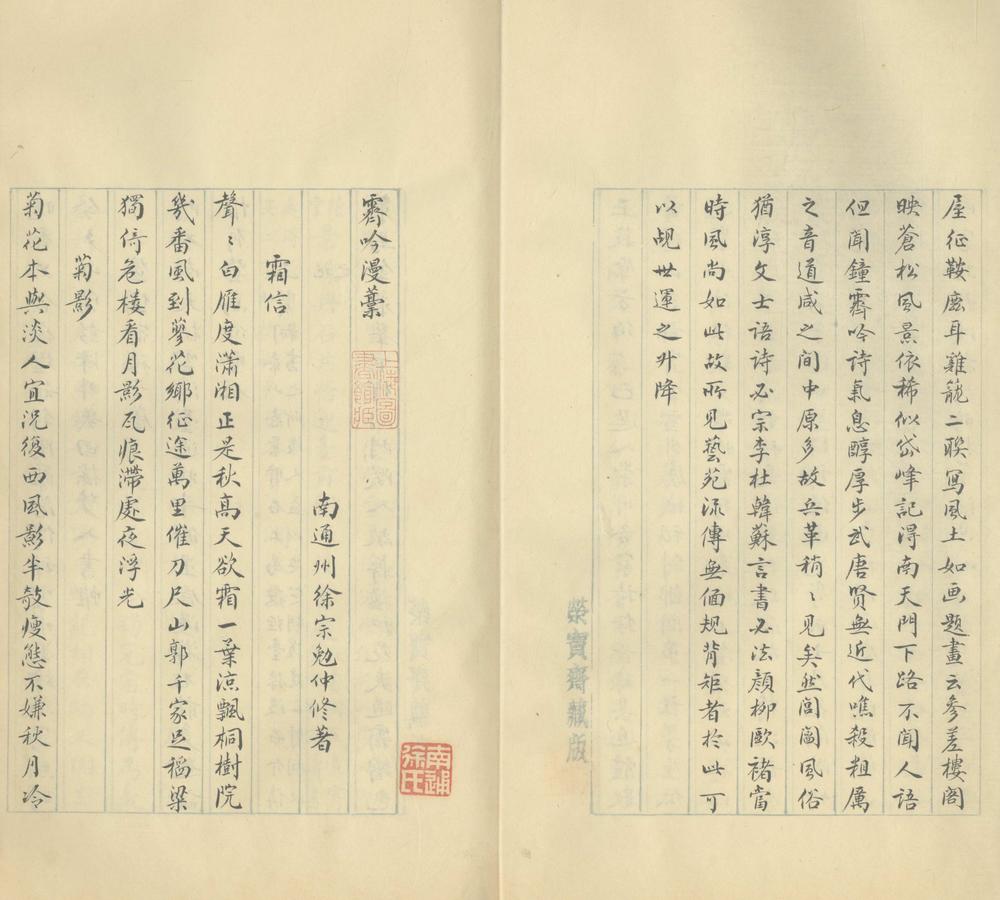 屋征鞍塵耳雞籠二联寫風土如画題畫云參差樓閣
映蒼松風景依稀似岱峰記得南天門下路不闻人語
但闻鐘霽吟詩氣息醇厚步武唐賢無近代噍殺粗厲
之音道咸之间中原多故兵革稍〻見矣然闾阎風俗
猶淳文士語詩必宗李杜韓蘇言書必法顔柳歐褚當
時風尚如此故所见藝苑流傳無偭规背矩者於此可
以觇世運之升降
榮寶齋藏版
霽吟漫藁
南通州徐宗勉仲修著
南通徐氏
霜信
聲〻白雁度瀟湘正是秋高天欲霜一葉涼飄桐樹院
幾番風到蓼花鄉征途萬里催刀尺山郭千家足稻粱
獨倚危楼看月影瓦痕滯處夜浮光
菊影
菊花本與淡人宜况復西風影半敧瘦態不嫌秋月冷